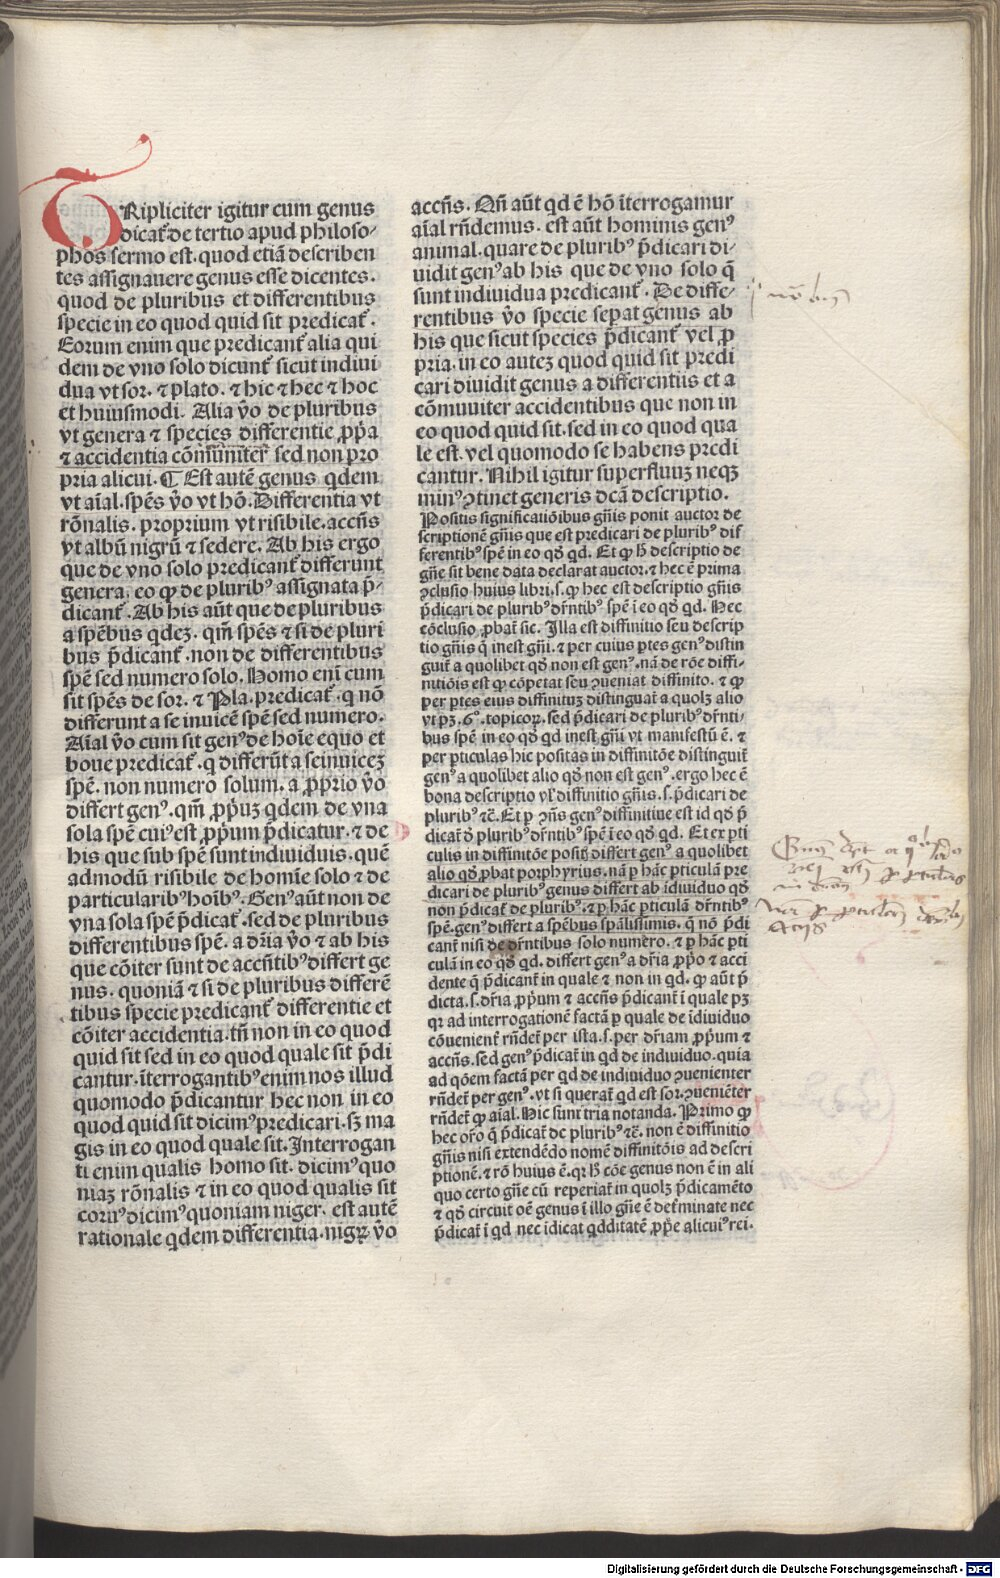 TRipliciter igitur cum genus
dicat᷑ de tertio apud philoso⸗
phos sermo est. quod etiā describen
tes assignauere genus esse dicentes.
quod de pluribus et differentibus
specie in eo quod quid sit predicat᷑.
Eorum enim que predicant᷑ alia qui
dem de vno solo dicunt᷑ sicut indiui
dua vt sor. ⁊ plato. ⁊ hic ⁊ hec ⁊ hoc
et huiusmodi. Alia ṽo de pluribus
vt genera ⁊ species differentie ꝓp̄a
⁊ accidentia cōmūniter sed non pro
pria alicui. ¶ Est autē genus qdem
vt aīal. spēs ṽo vt hō. Differentia vt
rōnalis. proprium vt risibile. accn̄s
vt albū nigrū ⁊ sedere. Ab his ergo
que de vno solo predicant᷑ differunt
genera. eo ꝙ de pluribꝰ assignata p̄⸗
dicant᷑. Ab his aūt que de pluribus
a spēbus qdeꝫ. qm̄ spēs ⁊ si de pluri
bus p̄dicant᷑. non de differentibus
spē sed numero solo. Homo eni cum
sit spēs de sor. ⁊ Pla. predicat᷑. q nō
differunt a se inuicē spē sed numero.
Aīal ṽo cum sit genꝰ de hoīe equo et
boue predicat᷑. q differūt a seinuiceꝫ
spē. non numero solum. a ꝓprio ṽo
differt genꝰ. qm̄ ꝓp̄uꝫ qdem de vna
sola spē cuiꝰ est ꝓp̄um p̄dicatur. ⁊ de
his que sub spē sunt indiuiduis. quē
admodū risibile de homīe solo ⁊ de
particularibꝰ hoībꝰ. Genꝰ aūt non de
vna sola spē p̄dicat᷑. sed de pluribus
differentibus spē. a dr̄ia ṽo ⁊ ab his
que cōiter sunt de accn̄tibꝰ differt ge
nus. quoniā ⁊ si de pluribus differē
tibus specie predicant᷑ differentie et
cōiter accidentia. tn̄ non in eo quod
quid sit sed in eo quod quale sit p̄di
cantur. īterrogantibꝰ enim nos illud
quomodo p̄dicantur hec non in eo
quod quid sit dicimꝰ predicari. sꝫ ma
gis in eo quod quale sit. Interrogan
ti enim qualis homo sit. dicimꝰ quo
niaꝫ rōnalis ⁊ in eo quod qualis sit
coruꝰ dicimꝰ quoniam niger. est autē
rationale qdem differentia. nigꝝ ṽo
accn̄s. Qn̄ aūt qd ē hō īterrogamur
aīal rn̄demus. est aūt hominis genꝰ
animal. quare de pluribꝰ p̄dicari di⸗
uidit genꝰ ab his que de vno solo q̄
sunt indiuidua predicant᷑. De diffe⸗
rentibus ṽo specie seꝑat genus ab
his que sicut species p̄dicant᷑ vel ꝓ
pria. in eo auteꝫ quod quid sit predi
cari diuidit genus a differentiis et a
cōmuniter accidentibus que non in
eo quod quid sit. sed in eo quod qua
le est. vel quomodo se habens predi
cantur. Nihil igitur superfluuꝫ neqꝫ
minꝰ ↄtinet generis dc̄a descriptio.
Positis significatiōibus gn̄is ponit auctor de
scriptionē gn̄is que est predicari de pluribꝰ dif
ferentibꝰ spē in eo qd̄ qd. Et ꝙ h̄ descriptio de
gn̄e sit bene data declarat auctor. ⁊ hec ē prima
ↄclusio huius libri. s. ꝙ hec est descriptio gn̄is
p̄dicari de pluribꝰ dr̄ntibꝰ spē ī eo qd̄ qd. Hec
cōclusio ꝓbat᷑ sic. Illa est diffinitio seu descrip
tio gn̄is q̄ inest gn̄i. ⁊ per cuius ꝑtes genꝰ distin
guit᷑ a quolibet qd̄ non est genꝰ. nā de rōe diffi⸗
nitiōis est ꝙ cōpetat seu ↄueniat diffinito. ⁊ ꝙ
per ꝑtes eius diffinituꝫ distinguat᷑ a quolꝫ alio
vt pꝫ. 6ꝰ. topicoꝝ. sed p̄dicari de pluribꝰ dr̄nti⸗
bus spē in eo qd̄ qd inest gn̄i vt manifestū ē. ⁊
per ꝑticulas hic positas in diffinitōe distinguit᷑
genꝰ a quolibet alio qd̄ non est genꝰ. ergo hec ē
bona descriptio vl̓ diffinitio gn̄is. s. p̄dicari de
pluribꝰ ⁊c̄. Et ꝑ ↄn̄s genꝰ diffinitiue est id qd̄ p̄
dicat᷑ d̓ pluribꝰ dr̄ntibꝰ spē ī eo qd̄ qd. Et ex ꝑti
culis in diffinitōe positꝭ differt genꝰ a quolibet
alio qd̄ ꝓbat porphyrius. nā ꝑ hāc ꝑticulā pre
dicari de pluribꝰ genus differt ab īdiuiduo qd̄
non p̄dicat᷑ de pluribꝰ. ⁊ ꝑ hāc ꝑticulā dr̄ntibꝰ
spē. genꝰ differt a spēbus spāl̓issimis. q̄ nō p̄di
cant᷑ nisi de dr̄ntibus solo numero. ⁊ ꝑ hāc ꝑti
culā in eo qd̄ qd. differt genꝰ a dr̄ia ꝓp̄o ⁊ acci
dente q̄ p̄dicant᷑ in quale ⁊ non in qd. ꝙ aūt p̄
dicta. s. dr̄ia ꝓp̄um ⁊ accn̄s p̄dicant᷑ ī quale pꝫ
qꝛ ad interrogationē factā ꝑ quale de īdiuiduo
cōuenient᷑ rn̄det᷑ per ista. s. per dr̄iam ꝓp̄um ⁊
accn̄s. sed genꝰ p̄dicat᷑ in qd de indiuiduo. quia
ad qōem factā per qd de indiuiduo ↄuenienter
rn̄det᷑ per genꝰ. vt si querat᷑ qd est sor. ↄueniēter
rn̄det᷑ ꝙ aīal. Hic sunt tria notanda. Primo ꝙ
hec or̄o q̄ p̄dicat᷑ de pluribꝰ ⁊c̄. non ē diffinitio
gn̄is nisi extendēdo nomē diffinitōis ad descri
ptionē. ⁊ rō huius ē. qꝛ h̄ cōe genus non ē in ali
quo certo gn̄e cū reperiat᷑ in quolꝫ p̄dicamēto
⁊ qd̄ circuit oē genus ī illo gn̄e ē det᷑minate nec
p̄dicat᷑ ī qd nec īdicat qdditatē ꝓp̄e alicuiꝰ rei.
Digitalisierung gefördert durch die Deutsche Forschungsgemeinschaft - DFG